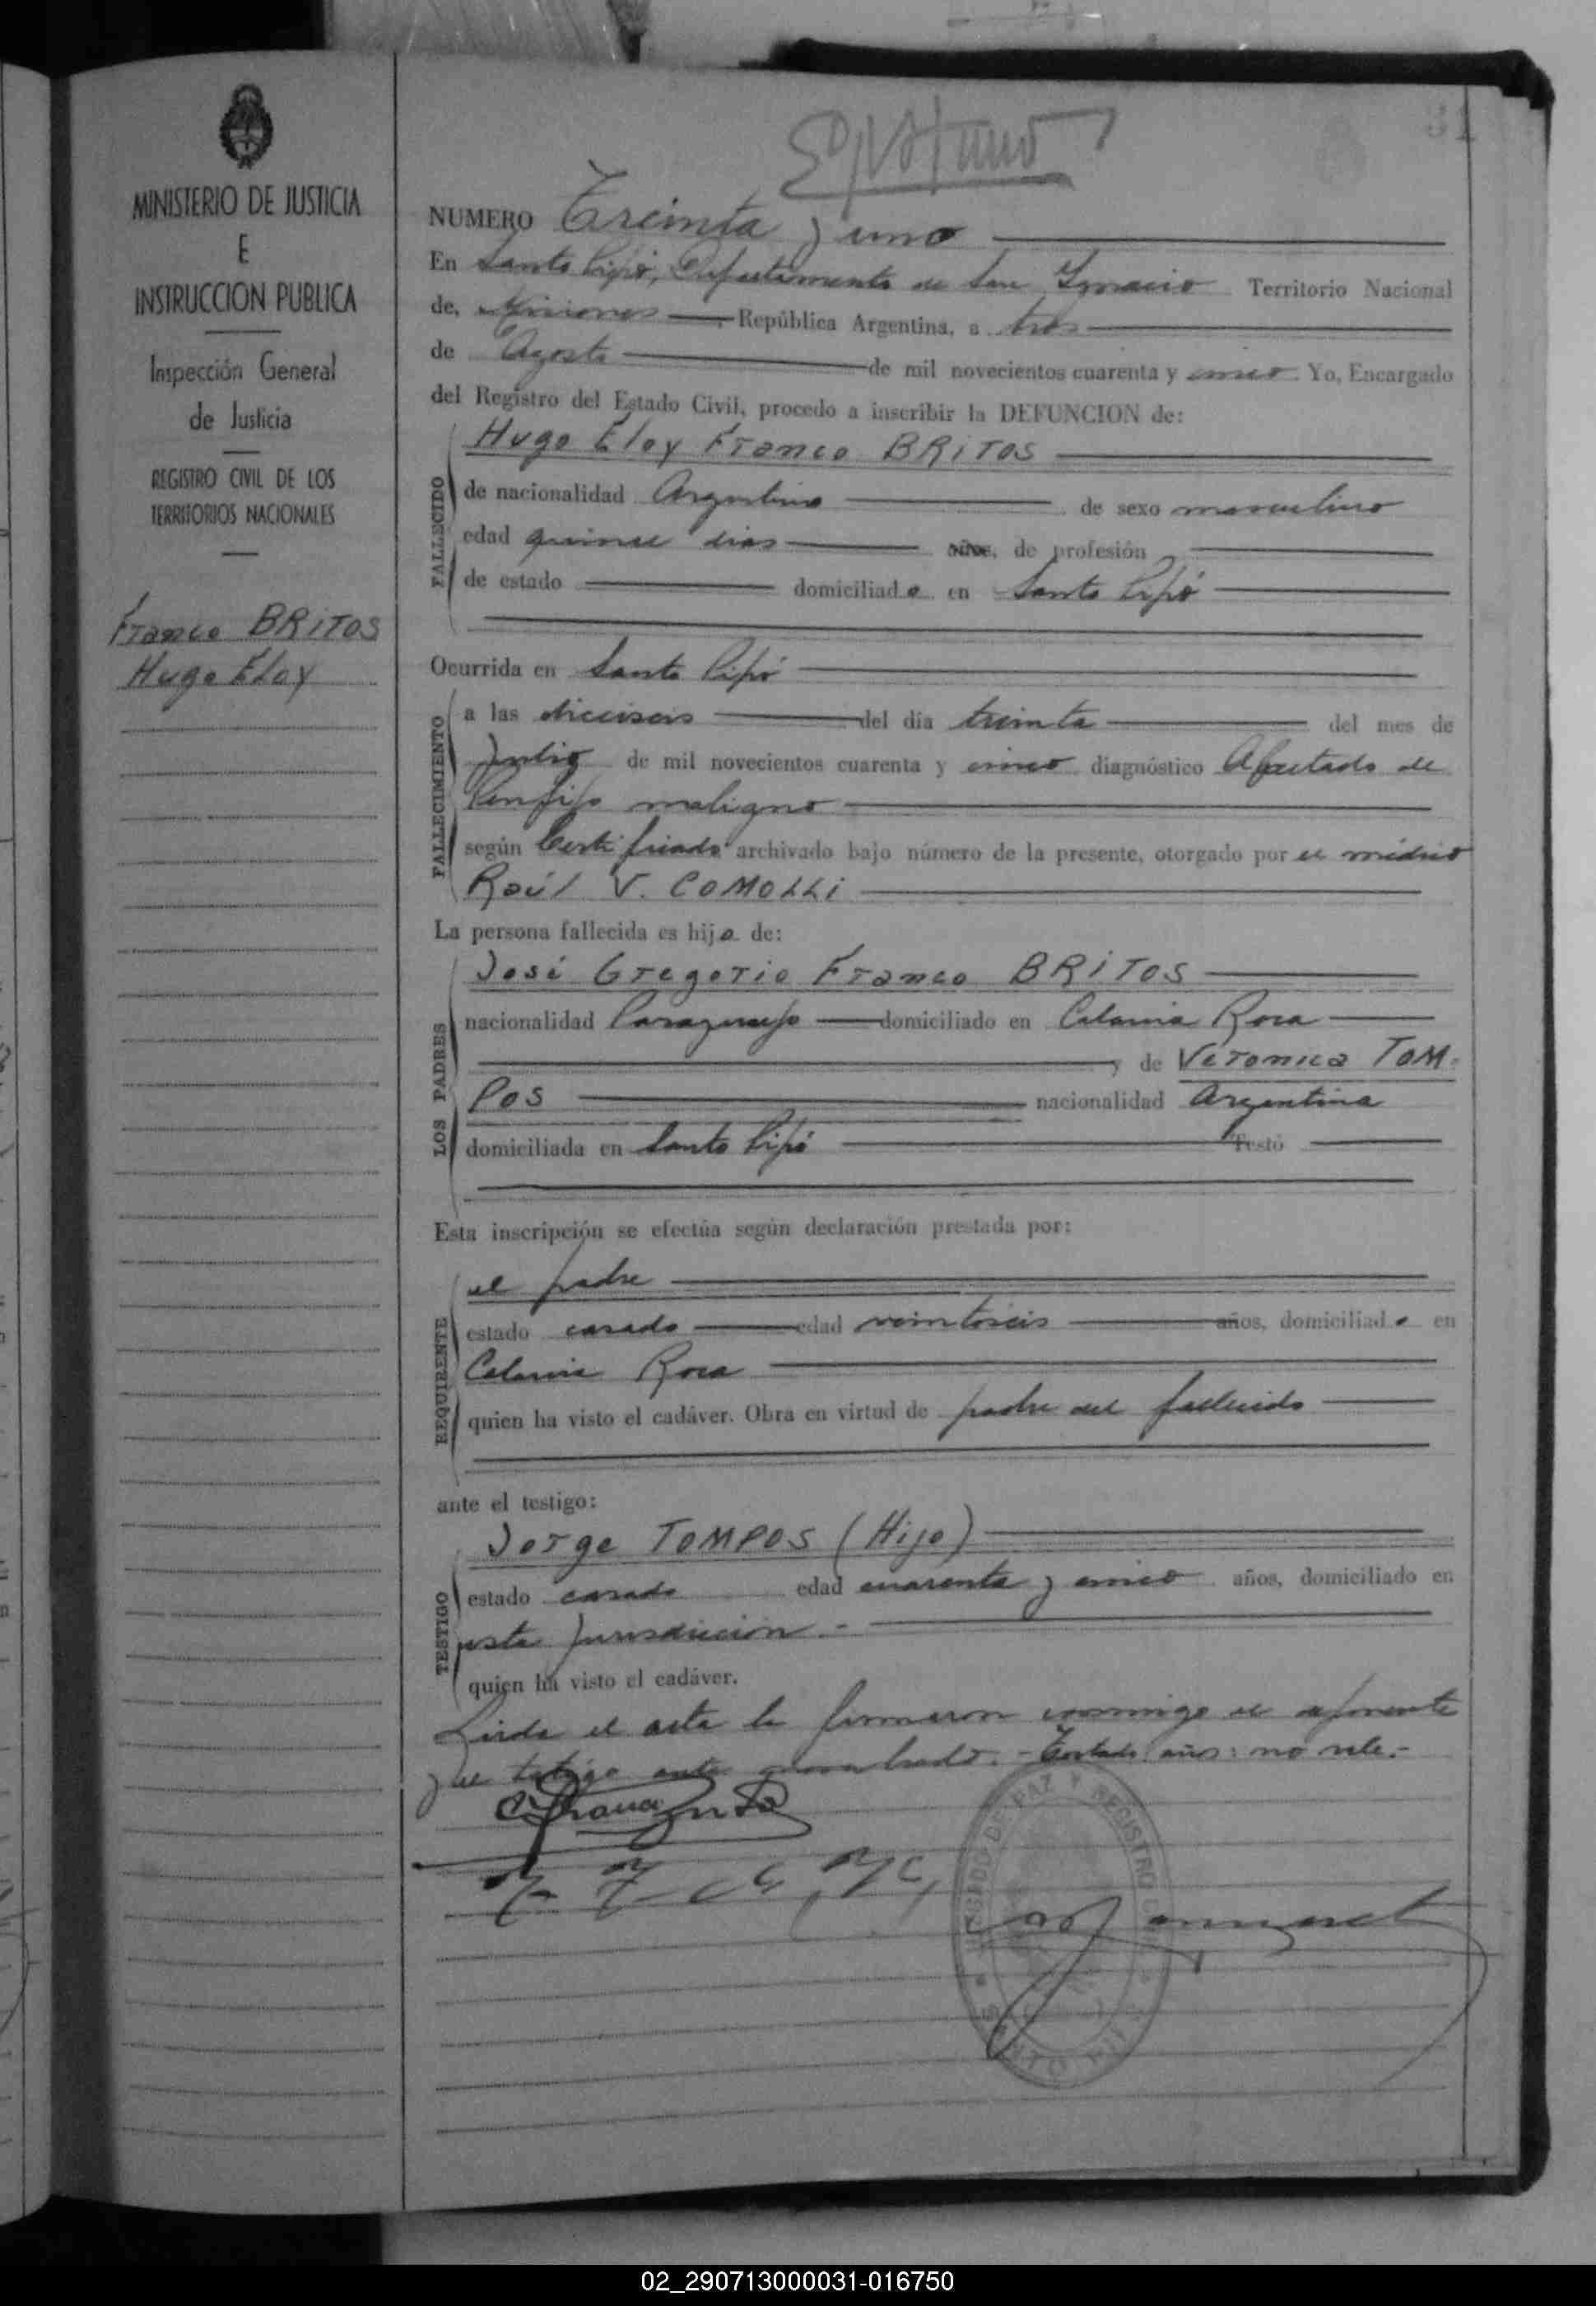 MINISTERIO DE JUSTICIA
E
INSTRUCCION PUBLICA
Inspección General
de Justicia
REGISTRO CIVIL DE LOS
TERRITORIOS NACIONALES
Franco BRITOS
Hugo Eloy
31
NUMERO Treinta y uno
En Santo Pipó, Departamento de San Ignacio Territorio Nacional
de, Misiones República Argentina, a tres
de Agosto de mil novecientos cuarenta y cinco. Yo, Encargado
del Registro del Estado Civil, procedo a inscribir la DEFUNCION de:
FALLECIDO
Hugo Eloy Franco BRITOS
de nacionalidad Argentino de sexo masculino
edad quince dias años, de profesión
de estado domiciliado en Santo Pipó
Ocurrida en Santo Pipó
FALLECIMIENTO
a las dieciseis del día treinta del mes de
Julio de mil novecientos cuarenta y cinco diagnóstico Afectado de
Penfigo maligno
según Certificado archivado bajo número de la presente, otorgado por el médico
Raúl V. COMOLLI
La persona fallecida es hijo de:
LOS PADRES
José Gregorio Franco BRITOS
nacionalidad Paraguayo domiciliado en Colonia Roca
y de Veronica TOM-
POS nacionalidad Argentina
domiciliada en Santo Pipó Testó
Esta inscripción se efectúa según declaración prestada por:
REQUIRENTE
el padre
estado casado edad veintiseis años, domiciliado en
Colonia Roca
quien ha visto el cadáver. Obra en virtud de padre del fallecido
ante el testigo:
TESTIGO
Jorge TOMPOS (Hijo)
estado casado edad cuarenta y cinco años, domiciliado en
esta jurisdicción.-
quien ha visto el cadáver.
Leida el acta la firmaron conmigo el exponente
y el testigo ante nombrado.- Testado: años: no vale.-
JUZGADO DE PAZ Y REGISTRO CIVIL
SANTO PIPO
02_290713000031-016750